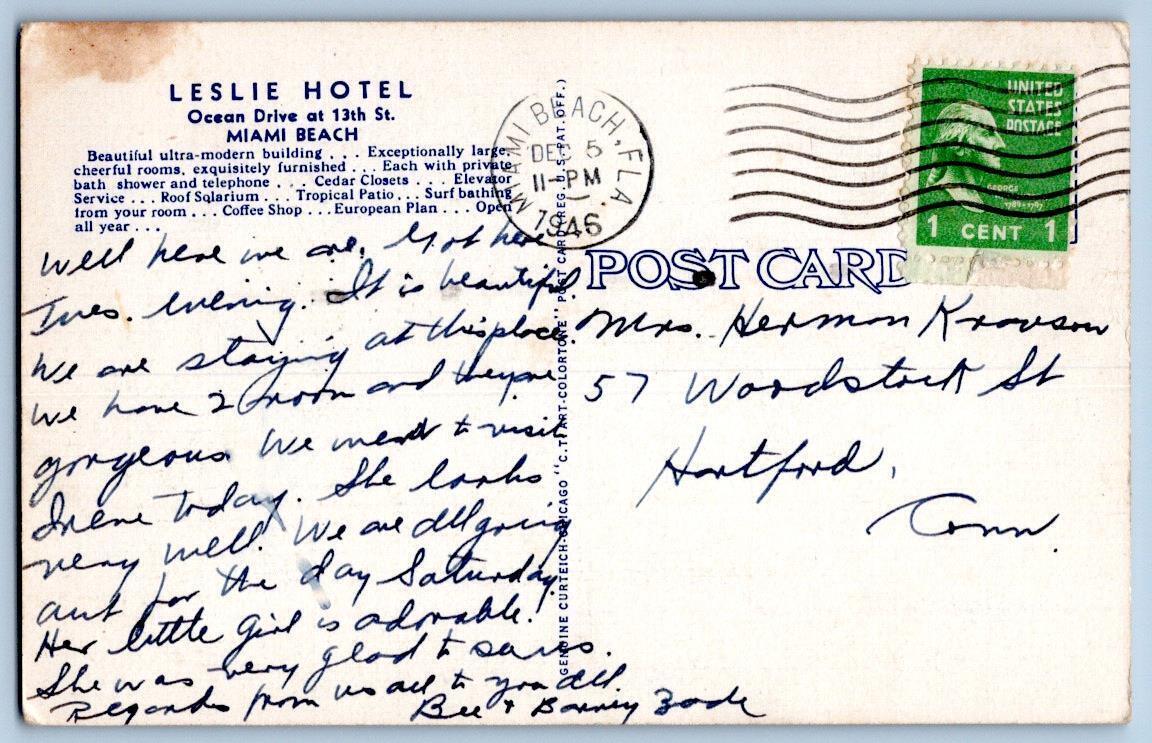 LESLIE HOTEL
Ocean Drive at 13th St.
MIAMI BEACH
Beautiful ultra-modern building . . . Exceptionally large,
cheerful rooms, exquisitely furnished . . . Each with private
bath shower and telephone . . . Cedar Closets . . . Elevator
Service . . . Roof Solarium . . . Tropical Patio . . . Surf bathing
from your room . . . Coffee Shop . . . European Plan . . . Open
all year . . .
Well here we are. Got here
Tues. evening. It is beautiful.
We are staying at this place.
We have 2 room and they're
gorgeous. We went to visit
Irene today. She looks
very well. We are all going
out for the day Saturday.
Her little girl is adorable!
She was very glad to see us.
Regards from us all to you all.
Bee + Barney Zack
GENUINE CURTEICH-CHICAGO "C.T. ART-COLORTONE" POST CARD (REG. U.S. PAT. OFF.)
MIAMI BEACH, FLA
DEC 5
11-PM
1946
UNITED
STATES
POSTAGE
GEORGE
1789-1797
1 CENT 1
POST CARD
Mrs. Herman Kravson
57 Woodstock St
Hartford,
Conn.